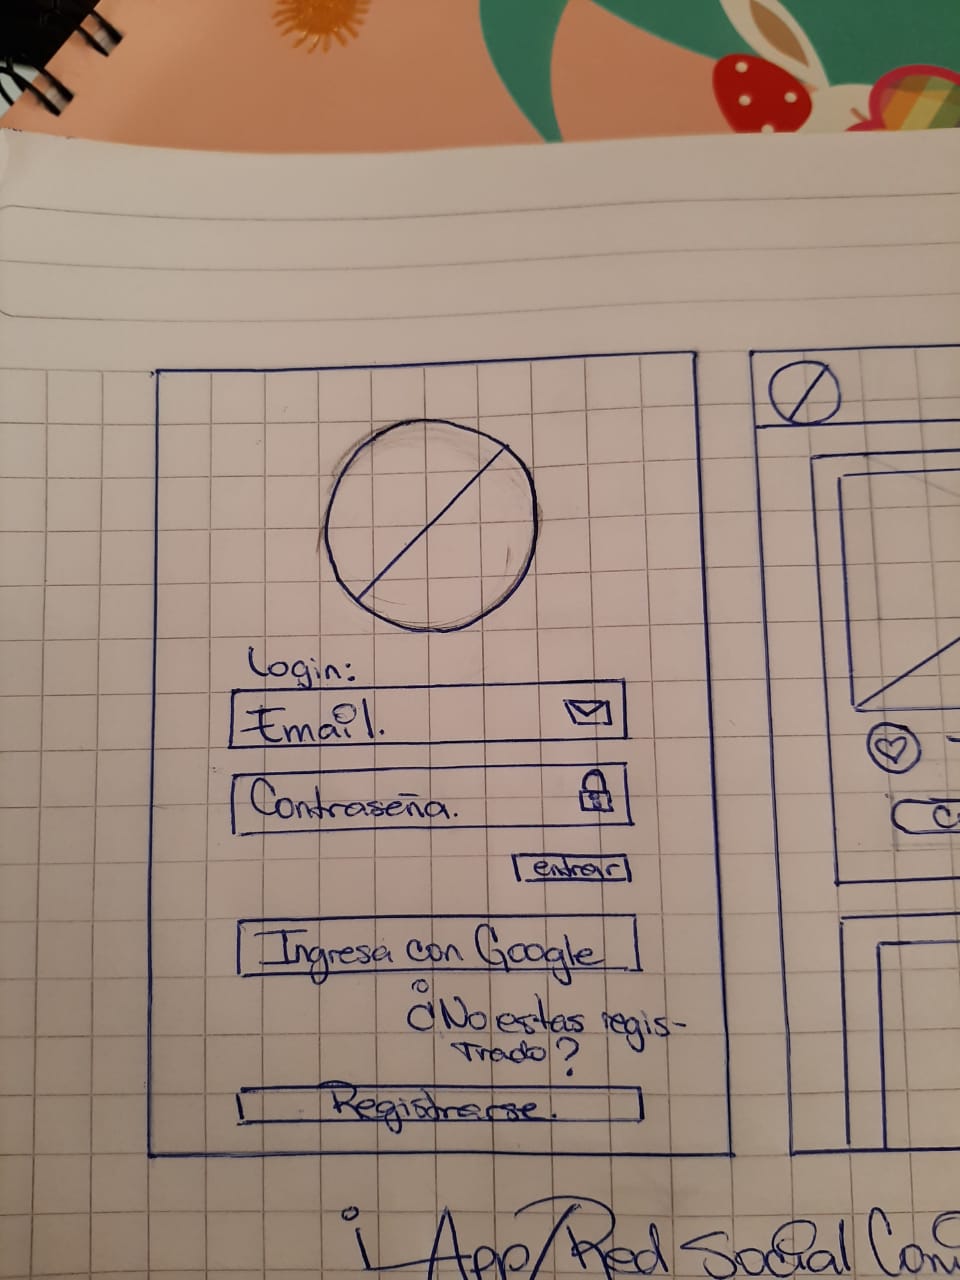 Login:
Email.
Contraseña.
entrar
Ingresa con Google
¿No estas regis-
trado?
Registrarse.
App/Red Social